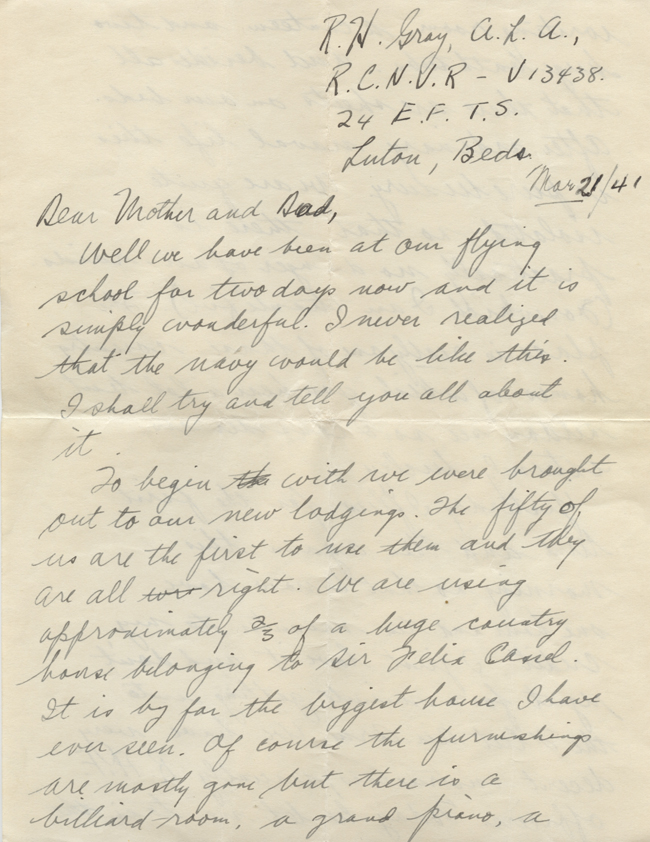 R. H. Gray, A.L.A.,
R.C.N.V.R - V13438.
24 E.F.T.S.
Luton, Beds.
Mar 21/41
Dear Mother and Dad,
Well we have been at our flying
school for two days now and it is
simply wonderful. I never realized
that the navy would be like this.
I shall try and tell you all about
it.
To begin the with we were brought
out to our new lodgings. The fifty of
us are the first to use them and they
are all right. We are using
approximately 2/3 of a huge country
house belonging to Sir Felix Cassel.
It is by far the biggest house I have
ever seen. Of course the furnishings
are mostly gone but there is a
billiard room, a grand piano, a